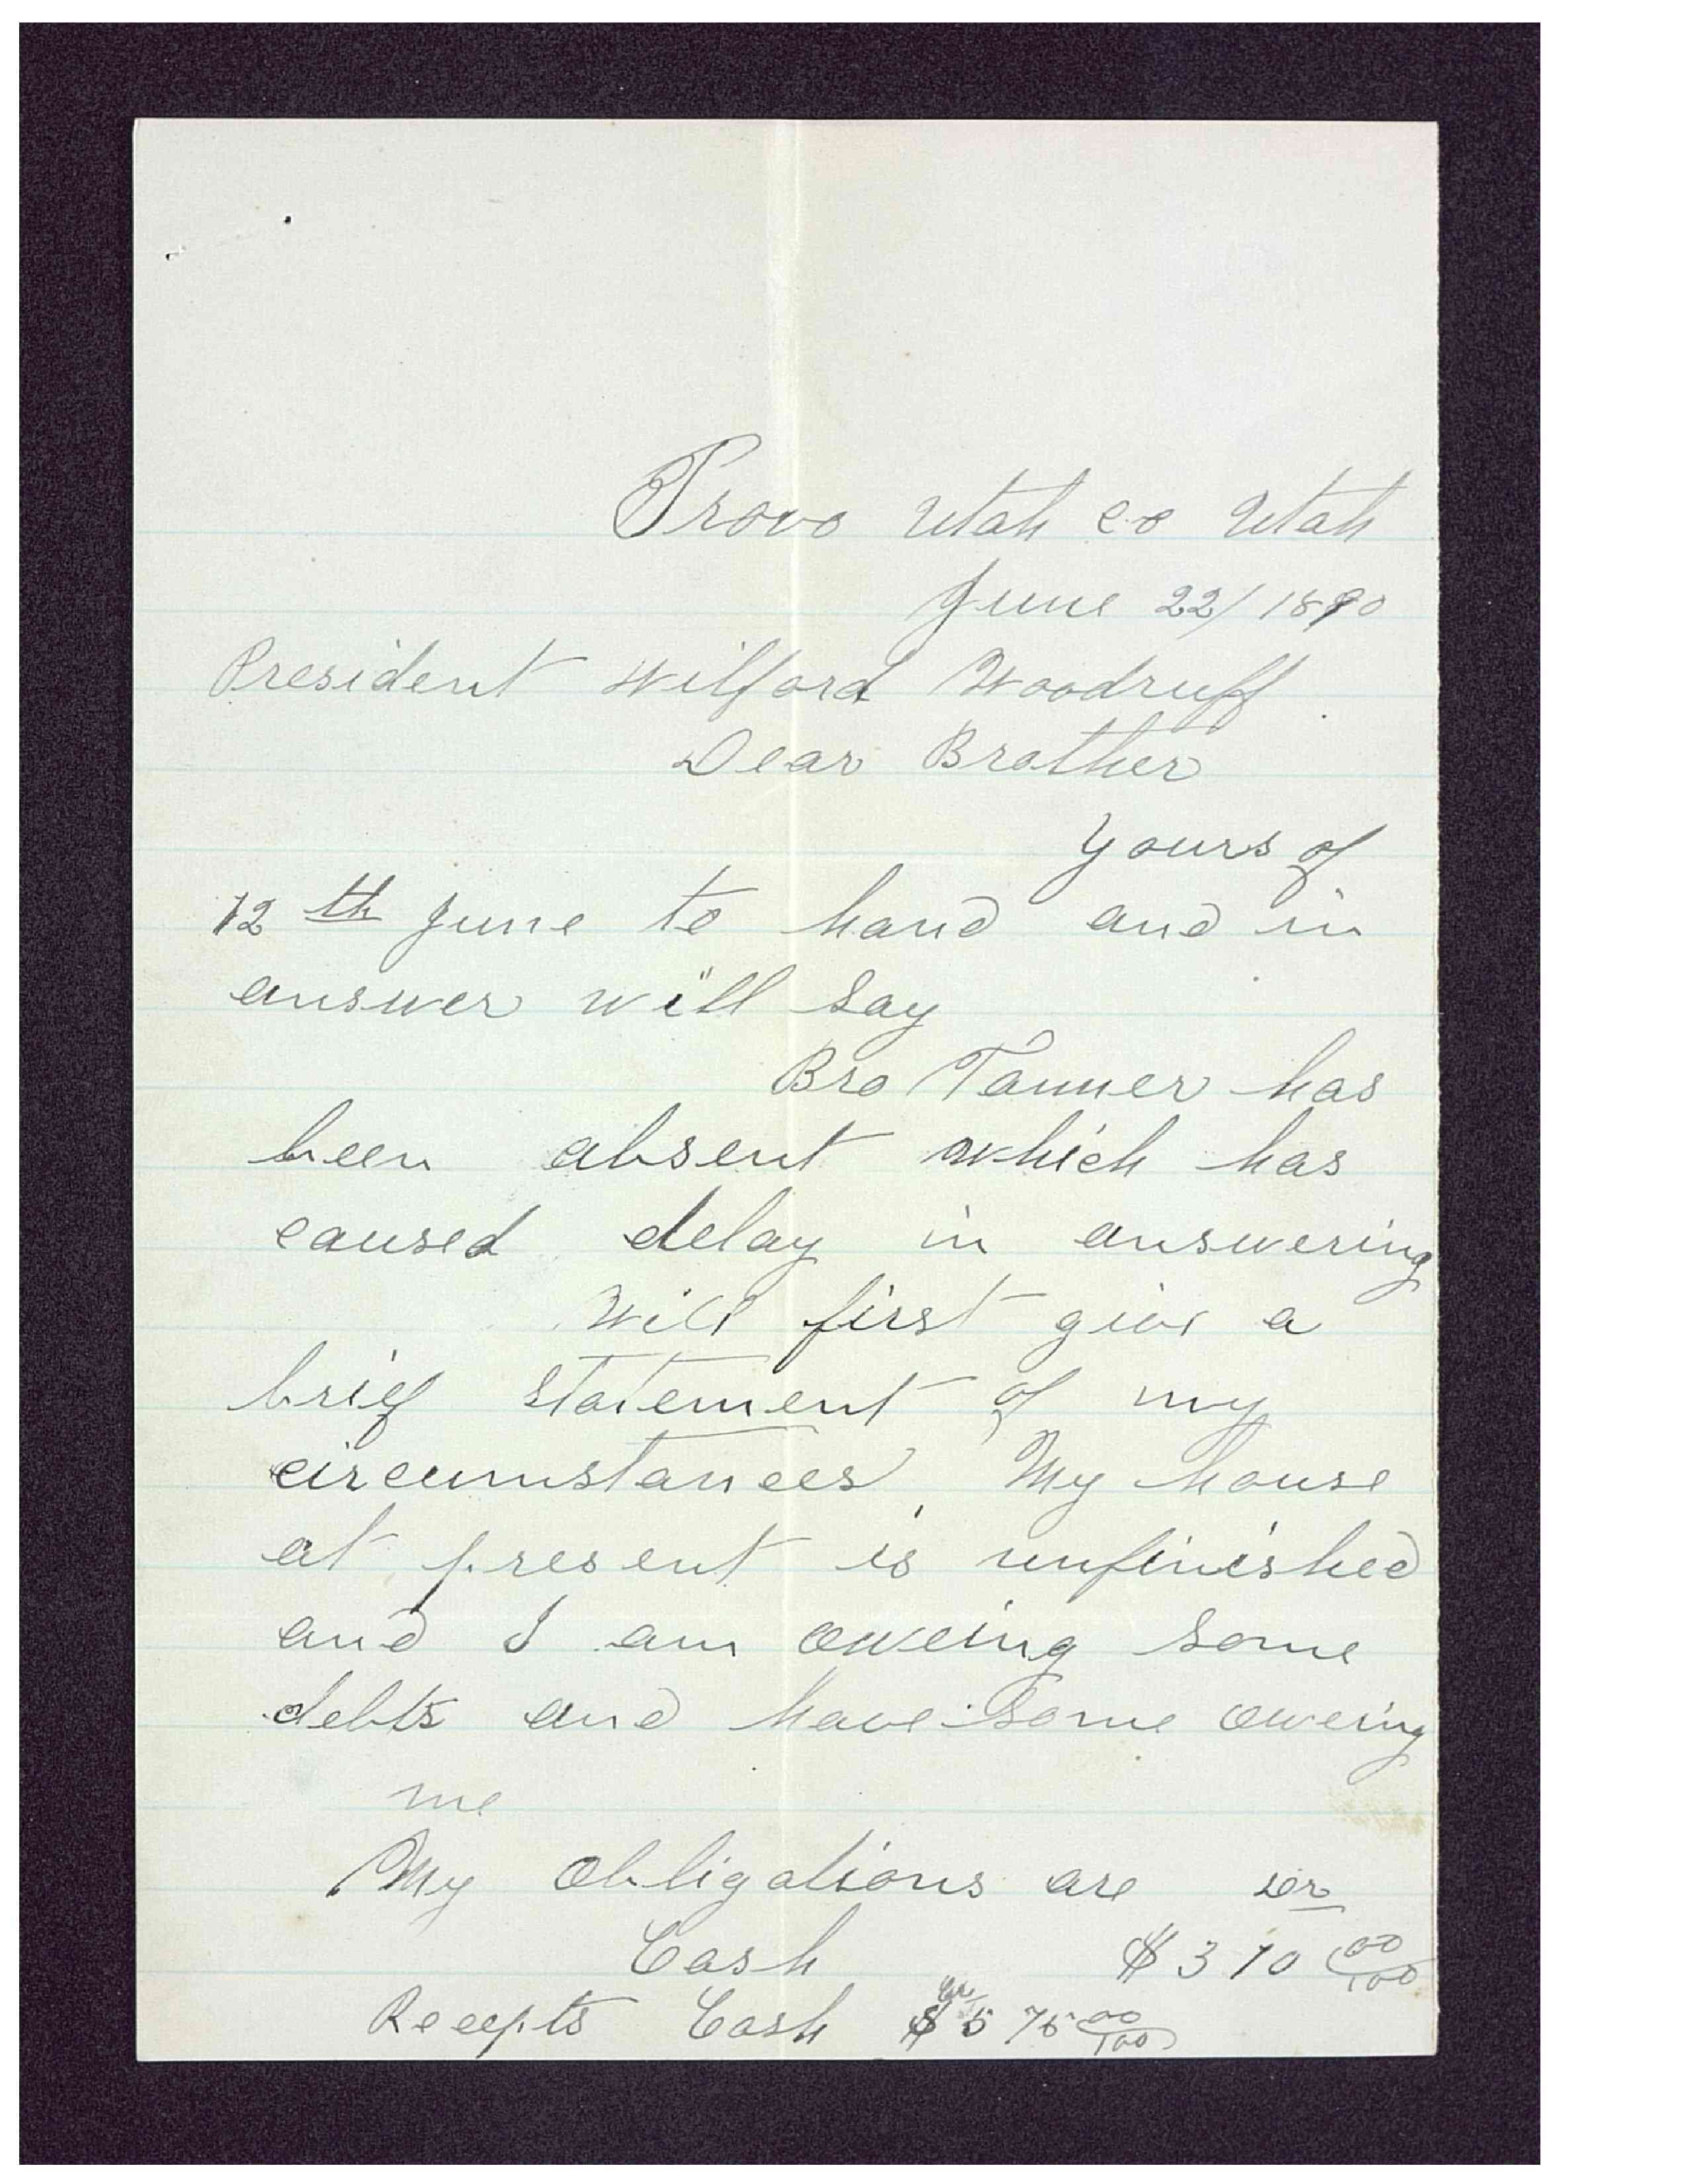 Provo Utah co Utah
June 22/1890
President Wilford Woodruff.
Dear Brother
Yours of
12th June to hand and in
answer will say
Bro Tanner has
been absent which has
caused delay in answering
Will first give a
brief statement of my
circumstances, My house
at present is unfinished
and I am oweing some
debts and have some oweing
me
My obligations are
Cash $310 00/100
Recepts Cash $575 00/100